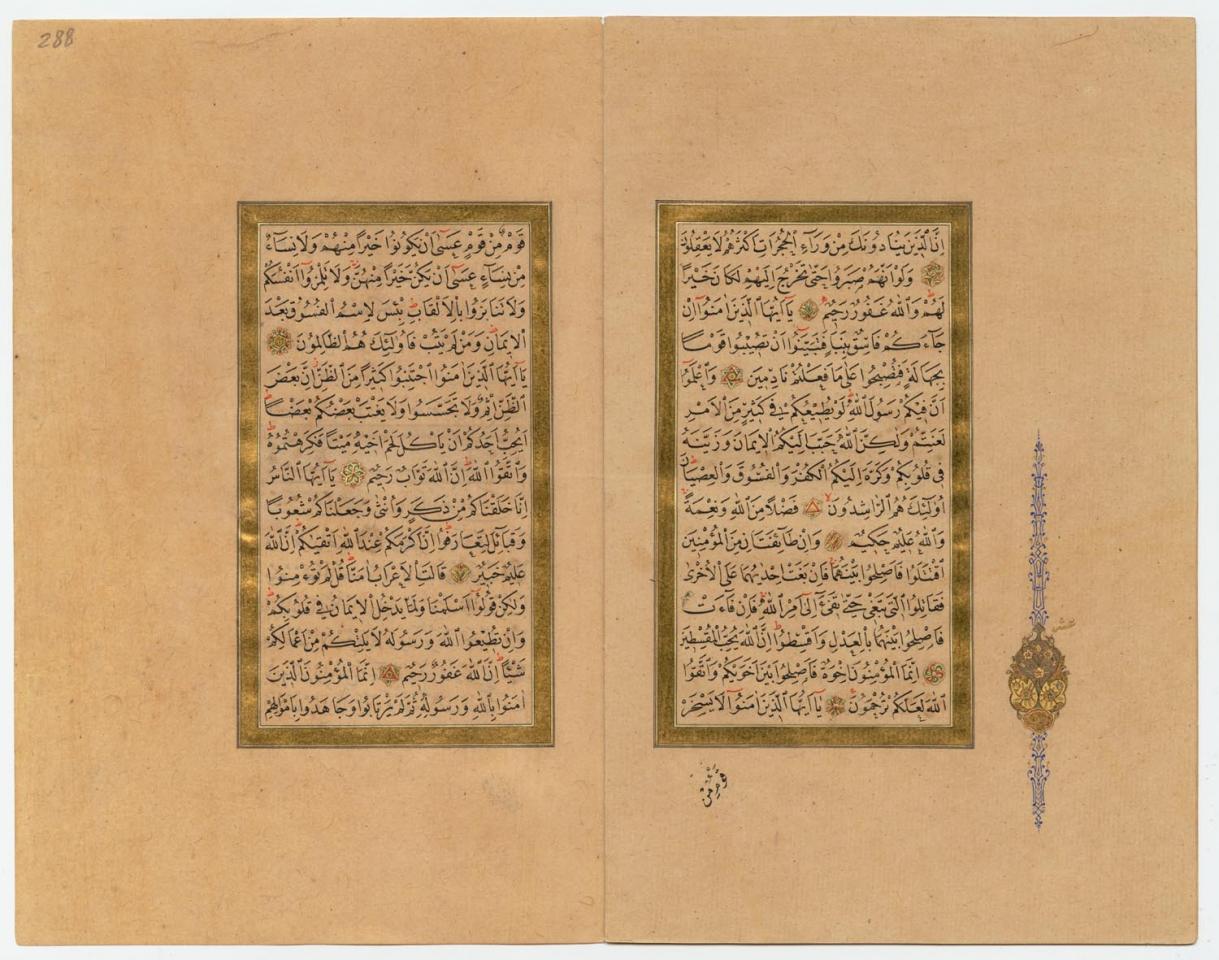 اِنَّ الَّذِينَ يُنَادُونَكَ مِنْ وَرَاءِ الْحُجُرَاتِ اَكْثَرُهُمْ لَا يَعْقِلُونَ
وَلَوْ اَنَّهُمْ صَبَرُوا حَتّٰى تَخْرُجَ اِلَيْهِمْ لَكَانَ خَيْرًا
لَهُمْ وَاللّٰهُ غَفُورٌ رَحِيمٌ يَا اَيُّهَا الَّذِينَ اٰمَنُوا اِنْ
جَاءَكُمْ فَاسِقٌ بِنَبَإٍ فَتَبَيَّنُوا اَنْ تُصِيبُوا قَوْمًا
بِجَهَالَةٍ فَتُصْبِحُوا عَلٰى مَا فَعَلْتُمْ نَادِمِينَ وَاعْلَمُوا
اَنَّ فِيكُمْ رَسُولَ اللّٰهِ لَوْ يُطِيعُكُمْ فِى كَثِيرٍ مِنَ الْاَمْرِ
لَعَنِتُّمْ وَلٰكِنَّ اللّٰهَ حَبَّبَ اِلَيْكُمُ الْاِيمَانَ وَزَيَّنَهُ
فِى قُلُوبِكُمْ وَكَرَّهَ اِلَيْكُمُ الْكُفْرَ وَالْفُسُوقَ وَالْعِصْيَانَ
اُولٰئِكَ هُمُ الرَّاشِدُونَ فَضْلًا مِنَ اللّٰهِ وَنِعْمَةً
وَاللّٰهُ عَلِيمٌ حَكِيمٌ وَاِنْ طَائِفَتَانِ مِنَ الْمُؤْمِنِينَ
اقْتَتَلُوا فَاَصْلِحُوا بَيْنَهُمَا فَاِنْ بَغَتْ اِحْدٰيهُمَا عَلَى الْاُخْرٰى
فَقَاتِلُوا الَّتِى تَبْغِى حَتّٰى تَفِىءَ اِلٰى اَمْرِ اللّٰهِ فَاِنْ فَاءَتْ
فَاَصْلِحُوا بَيْنَهُمَا بِالْعَدْلِ وَاَقْسِطُوا اِنَّ اللّٰهَ يُحِبُّ الْمُقْسِطِينَ
اِنَّمَا الْمُؤْمِنُونَ اِخْوَةٌ فَاَصْلِحُوا بَيْنَ اَخَوَيْكُمْ وَاتَّقُوا
اللّٰهَ لَعَلَّكُمْ تُرْحَمُونَ يَا اَيُّهَا الَّذِينَ اٰمَنُوا لَا يَسْخَرْ
قَوْمٌ مِنْ
عشر
288
قَوْمٌ مِنْ قَوْمٍ عَسٰى اَنْ يَكُونُوا خَيْرًا مِنْهُمْ وَلَا نِسَاءٌ
مِنْ نِسَاءٍ عَسٰى اَنْ يَكُنَّ خَيْرًا مِنْهُنَّ وَلَا تَلْمِزُوا اَنْفُسَكُمْ
وَلَا تَنَابَزُوا بِالْاَلْقَابِ بِئْسَ الِاسْمُ الْفُسُوقُ بَعْدَ
الْاِيمَانِ وَمَنْ لَمْ يَتُبْ فَاُولٰئِكَ هُمُ الظَّالِمُونَ
يَا اَيُّهَا الَّذِينَ اٰمَنُوا اجْتَنِبُوا كَثِيرًا مِنَ الظَّنِّ اِنَّ بَعْضَ
الظَّنِّ اِثْمٌ وَلَا تَجَسَّسُوا وَلَا يَغْتَبْ بَعْضُكُمْ بَعْضًا
اَيُحِبُّ اَحَدُكُمْ اَنْ يَاْكُلَ لَحْمَ اَخِيهِ مَيْتًا فَكَرِهْتُمُوهُ
وَاتَّقُوا اللّٰهَ اِنَّ اللّٰهَ تَوَّابٌ رَحِيمٌ يَا اَيُّهَا النَّاسُ
اِنَّا خَلَقْنَاكُمْ مِنْ ذَكَرٍ وَاُنْثٰى وَجَعَلْنَاكُمْ شُعُوبًا
وَقَبَائِلَ لِتَعَارَفُوا اِنَّ اَكْرَمَكُمْ عِنْدَ اللّٰهِ اَتْقٰيكُمْ اِنَّ اللّٰهَ
عَلِيمٌ خَبِيرٌ قَالَتِ الْاَعْرَابُ اٰمَنَّا قُلْ لَمْ تُؤْمِنُوا
وَلٰكِنْ قُولُوا اَسْلَمْنَا وَلَمَّا يَدْخُلِ الْاِيمَانُ فِى قُلُوبِكُمْ
وَاِنْ تُطِيعُوا اللّٰهَ وَرَسُولَهُ لَا يَلِتْكُمْ مِنْ اَعْمَالِكُمْ
شَيْئًا اِنَّ اللّٰهَ غَفُورٌ رَحِيمٌ اِنَّمَا الْمُؤْمِنُونَ الَّذِينَ
اٰمَنُوا بِاللّٰهِ وَرَسُولِهِ ثُمَّ لَمْ يَرْتَابُوا وَجَاهَدُوا بِاَمْوَالِهِمْ